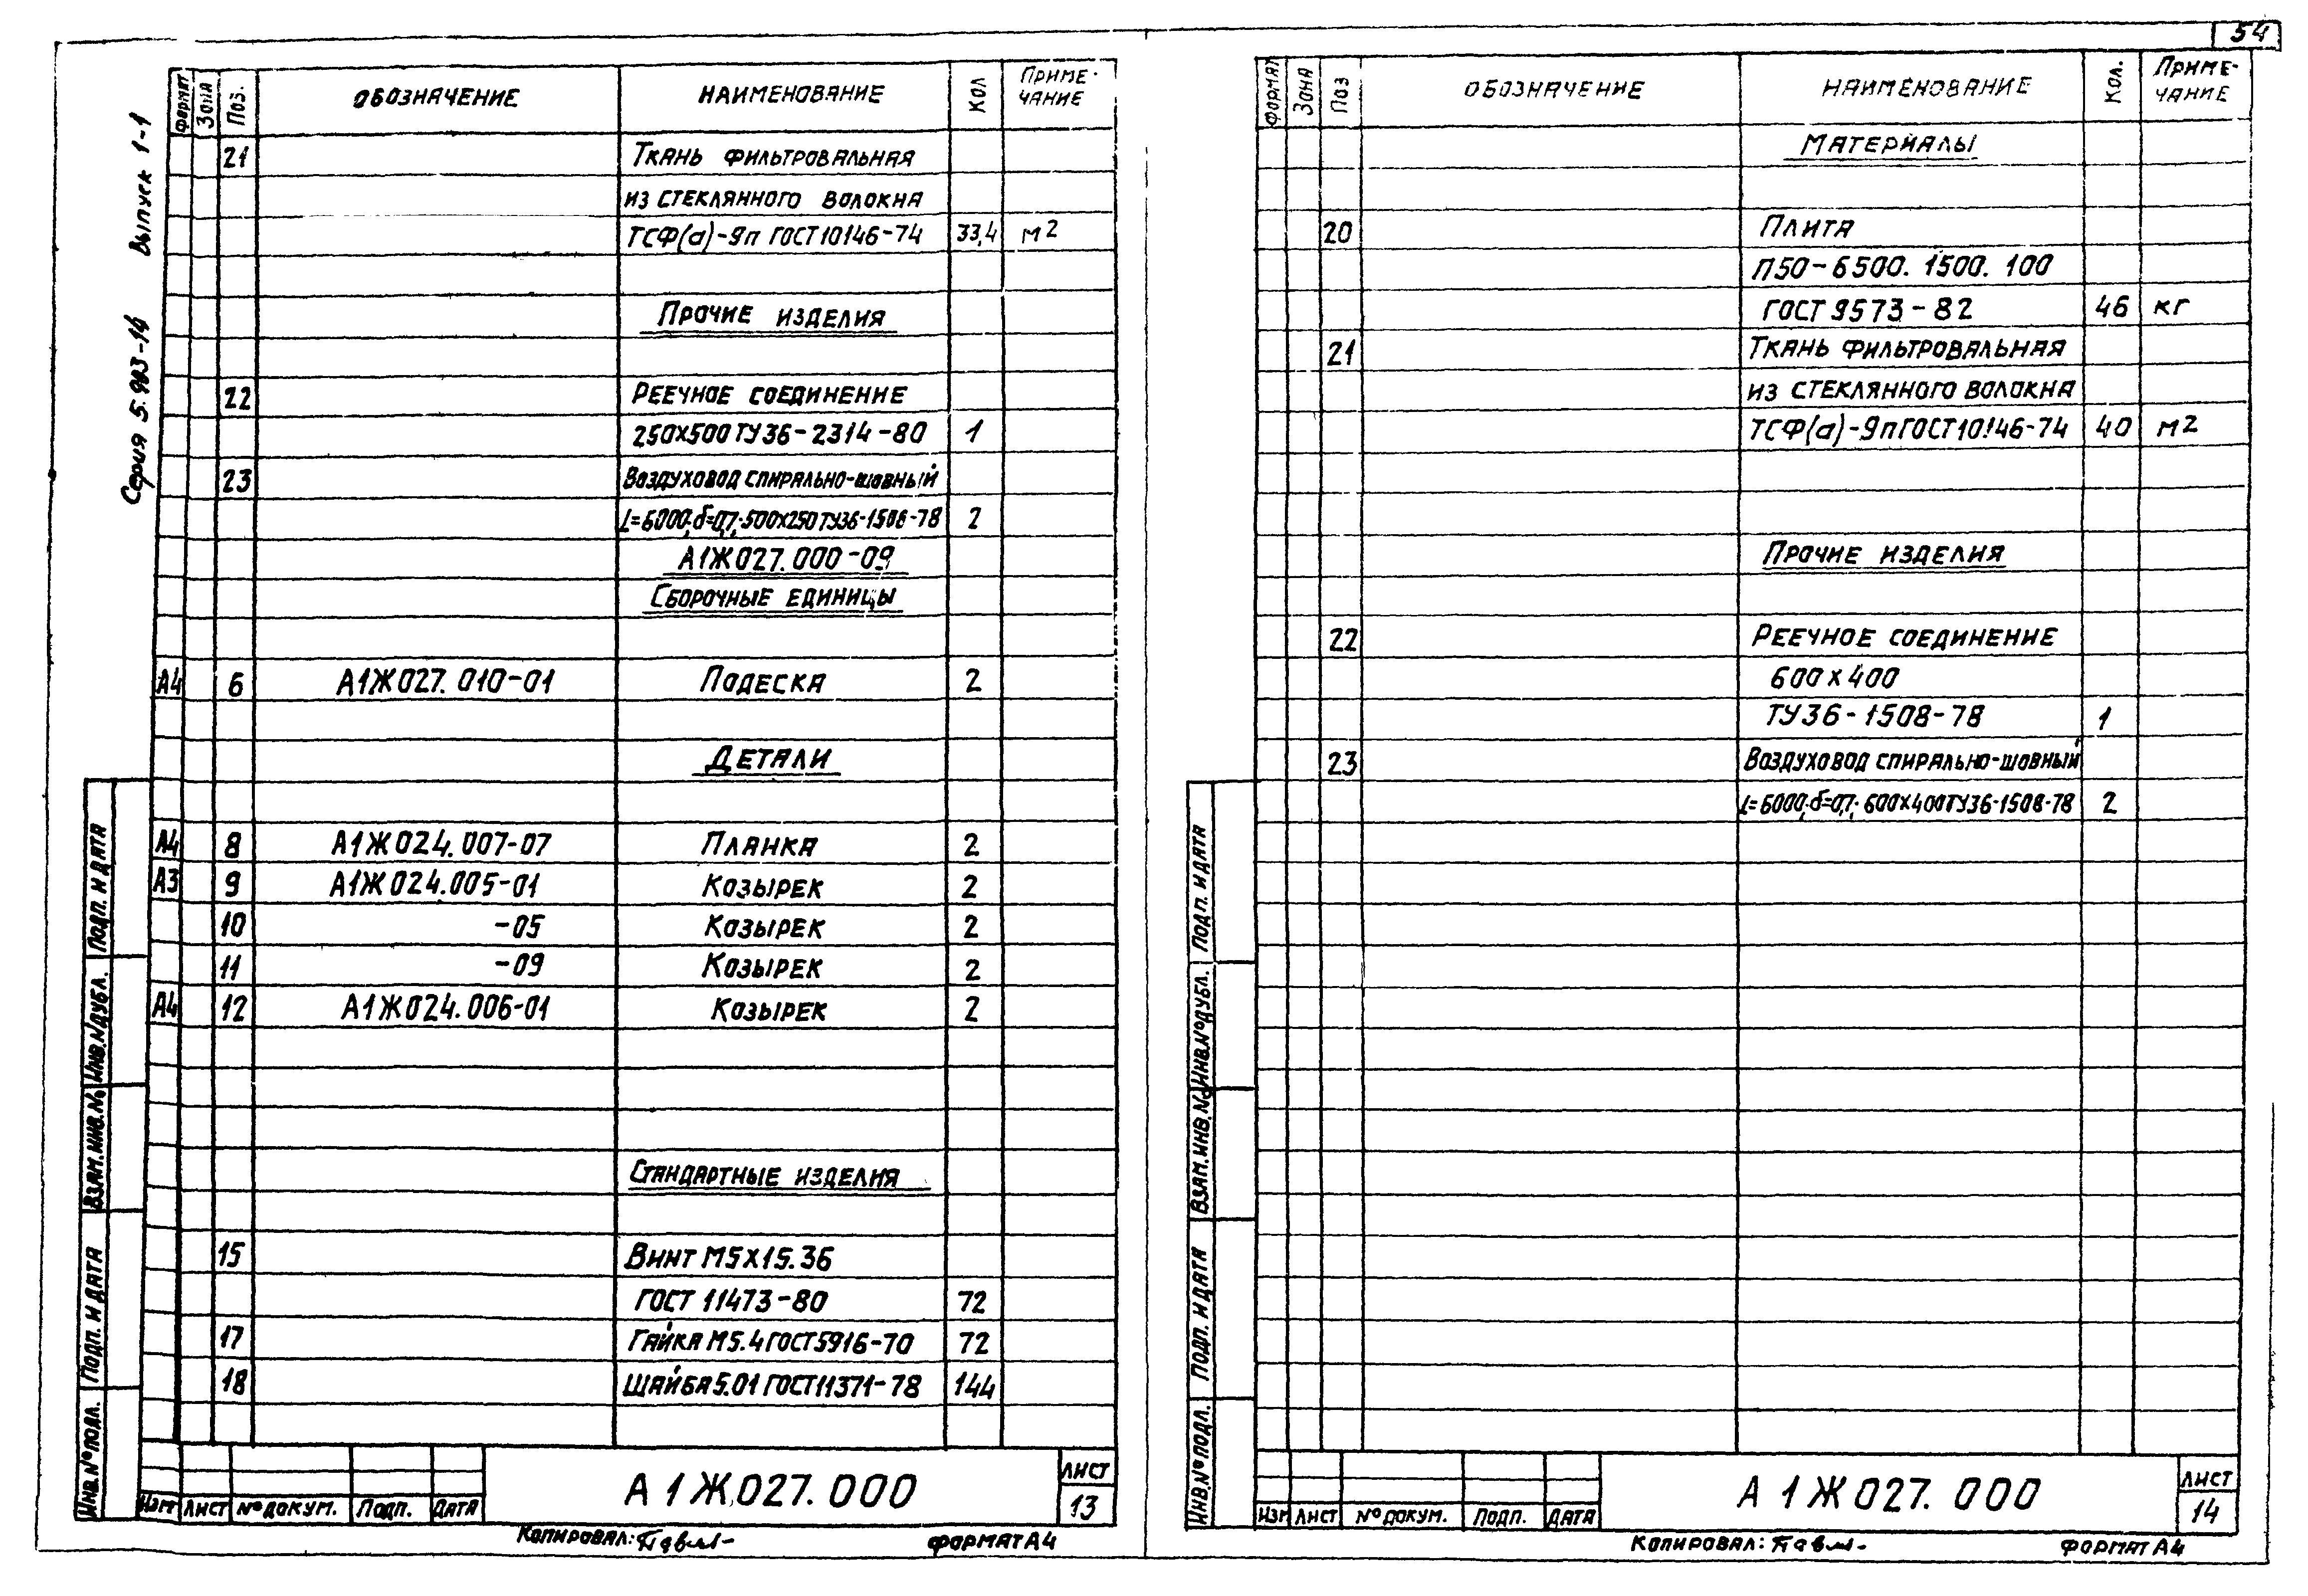 54
Серия 5.903-14 Выпуск 1-1
Формат Зона Поз. Обозначение Наименование Кол Приме-
чание
21 Ткань фильтровальная
из стеклянного волокна
ТСФ(а)-9п ГОСТ 10146-74 33,4 м2
Прочие изделия
22 Реечное соединение
250х500 ТУ36-2314-80 1
23 Воздуховод спирально-шовный
L=6000; б=0,7; 500х250 ТУ36-1508-78 2
А1Ж027.000-09
Сборочные единицы
А4 6 А1Ж027.010-01 Подвеска 2
Детали
А4 8 А1Ж024.007-07 Планка 2
А3 9 А1Ж024.005-01 Козырек 2
10 -05 Козырек 2
11 -09 Козырек 2
А4 12 А1Ж024.006-01 Козырек 2
Стандартные изделия
15 Винт М5х15.36
ГОСТ 11473-80 72
17 Гайка М5.4 ГОСТ 5916-70 72
18 Шайба 5.01 ГОСТ 11371-78 144
Инв.№подл. Подп. и дата Взам.инв.№ Инв.№дубл. Подп. и дата
Изм Лист № докум. Подп. Дата
А1Ж027.000
Лист
13
Копировал:
Формат А4
Формат Зона Поз Обозначение Наименование Кол. Приме-
чание
Материалы
20 Плита
П50-6500.1500.100
ГОСТ 9573-82 46 кг
21 Ткань фильтровальная
из стеклянного волокна
ТСФ(а)-9п ГОСТ 10146-74 40 м2
Прочие изделия
22 Реечное соединение
600х400
ТУ36-1508-78 1
23 Воздуховод спирально-шовный
L=6000; б=0,7; 600х400 ТУ36-1508-78 2
Инв.№подл. Подп. и дата Взам.инв.№ Инв.№дубл. Подп. и дата
Изм Лист № докум. Подп. Дата
А1Ж027.000
Лист
14
Копировал:
Формат А4